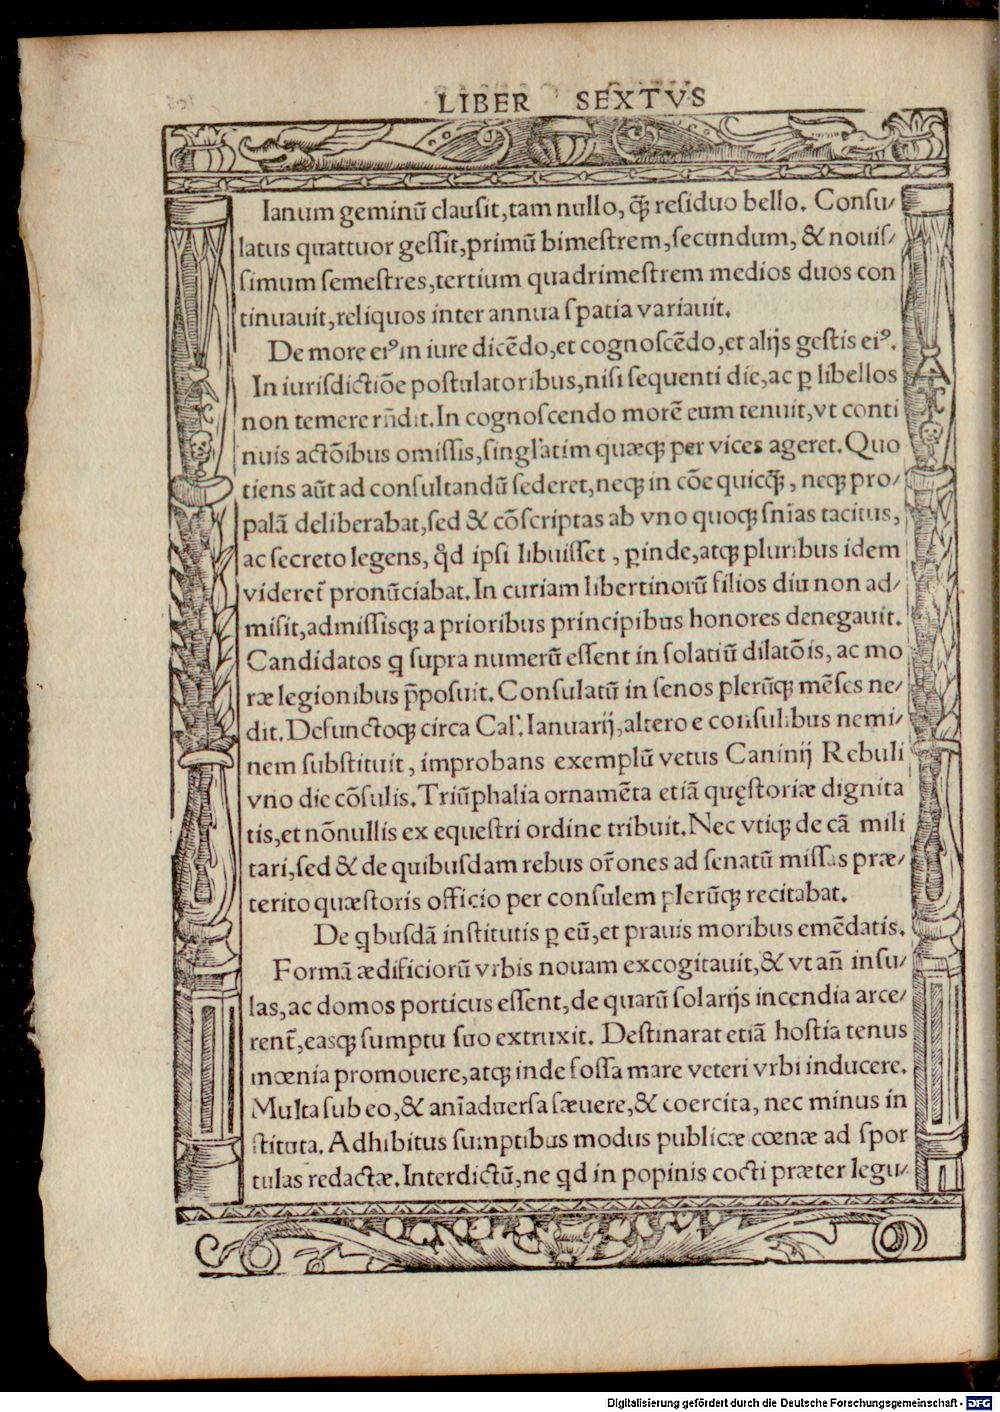 LIBER SEXTVS
Ianum geminū clausit,tam nullo, q̃ꝫ residuo bello. Consu/
latus quattuor gessit,primū bimestrem,secundum, & nouis/
simum semestres,tertium quadrimestrem medios duos con
tinuauit,reliquos inter annua spatia variauit.
De more eiꝰ in iure dicēdo,et cognoscēdo,et alijs gestis eiꝰ.
In iurisdictiōe postulatoribus,nisi sequenti die,ac ꝑ libellos
non temere rn̄dit.In cognoscendo morē eum tenuit,vt conti
nuis actōibus omissis,singl'atim quæqꝫ per vices ageret.Quo
tiens aūt ad consultandū sederet,neqꝫ in cōe quicq̃ꝫ, neqꝫ pro/
palā deliberabat,sed & cōscriptas ab vno quoqꝫ sn̄ias tacitus,
ac secreto legens, qd̄ ipsi libuisset , ꝑinde,atqꝫ pluribus idem
videret̃ pronūciabat.In curiam libertinorū filios diu non ad/
misit,admissisqꝫ a prioribus principibus honores denegauit.
Candidatos ꝗ supra numerū essent in solatiū dilatōis, ac mo
ræ legionibus p̄posuit.Consulatū in senos plerūqꝫ mēses ne/
dit.Defunctoqꝫ circa Cal'.Ianuarij,altero e consulibus nemi/
nem substituit, improbans exemplū vetus Caninij Rebuli
vno die cōsulis.Triūphalia ornamēta etiā quęstoriæ dignita
tis,et nōnullis ex equestri ordine tribuit.Nec vtiqꝫ de cā mili
tari,sed & de quibusdam rebus or̃ones ad senatū missas præ/
terito quæstoris officio per consulem plerūqꝫ recitabat.
De ꝗbusdā institutis ꝑ eū,et prauis moribus emēdatis.
Formā ædificiorū vrbis nouam excogitauit,& vt an̄ insu/
las,ac domos porticus essent,de quarū solarijs incendia arce/
rent̃,easqꝫ sumptu suo extruxit. Destinarat etiā hostia tenus
mœnia promouere,atqꝫ inde fossa mare veteri vrbi inducere.
Multa sub eo,& anīaduersa sæuere,& coercita, nec minus in
stituta.Adhibitus sumptibus modus publicæ cœnæ ad spor
tulas redactæ.Interdictū,ne ꝗd in popinis cocti præter legu/
Digitalisierung gefördert durch die Deutsche Forschungsgemeinschaft - DFG